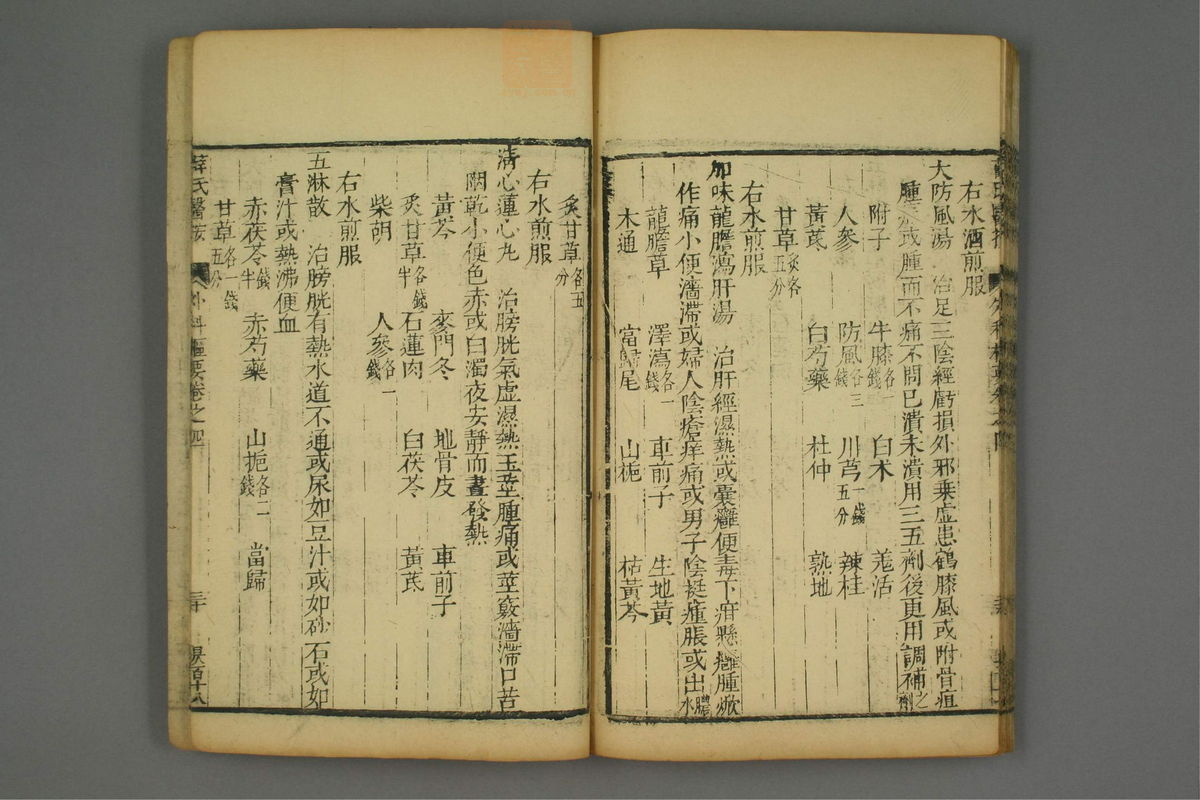 右水酒煎服
大防風湯 治足三陰經虧損外邪乘虛患鶴膝風或附骨疽
腫痛或腫而不痛不問已潰未潰用三五劑後更用調補之劑
附子 牛膝各一錢 白朮 羗活
人參 防風各三錢 川芎一錢五分 辣桂
黃茋 白芍藥 杜仲 熟地
甘草炙各五分
右水煎服
加味龍膽瀉肝湯 治肝經濕熱或囊癰便毒下疳懸癰腫焮
作痛小便濇滯或婦人陰瘡痒痛或男子陰挺腫脹或出膿水
龍膽草 澤瀉各一錢 車前子 生地黃
木通 當歸尾 山梔 枯黃芩
炙甘草各五分
右水煎服
清心蓮心丸 治膀胱氣虛濕熱玉莖腫痛或莖竅濇滯口苦
咽乾小便色赤或白濁夜安靜而晝發熱
黃芩 麥門冬 地骨皮 車前子
炙甘草各錢半 石蓮肉 白茯苓 黃茋
柴胡 人參各一錢
右水煎服
五淋散 治膀胱有熱水道不通或尿如豆汁或如砂石或如
膏汁或熱沸便血
赤茯苓錢半 赤芍藥 山梔各二錢 當歸
甘草各一錢五分
薛氏醫按 外科樞要卷之四 三十